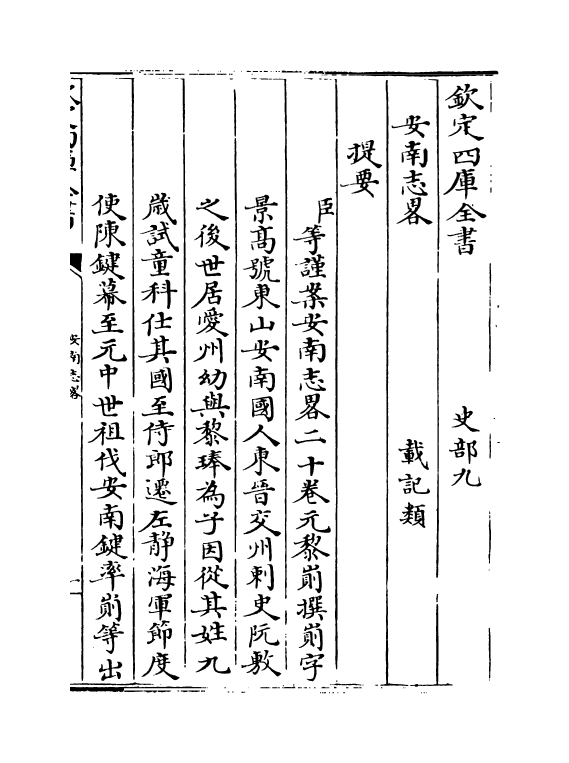 欽定四庫全書　史部九
安南志畧　載記類
提要
臣等謹案安南志畧二十卷元黎崱撰崱字
景髙號東山安南國人東晉交州刺史阮敷
之後世居愛州幼與黎琫為子因從其姓九
歳試童科仕其國至侍郎遷左静海軍節度
使陳鍵幕至元中世祖伐安南鍵率崱等出
安南志畧
一